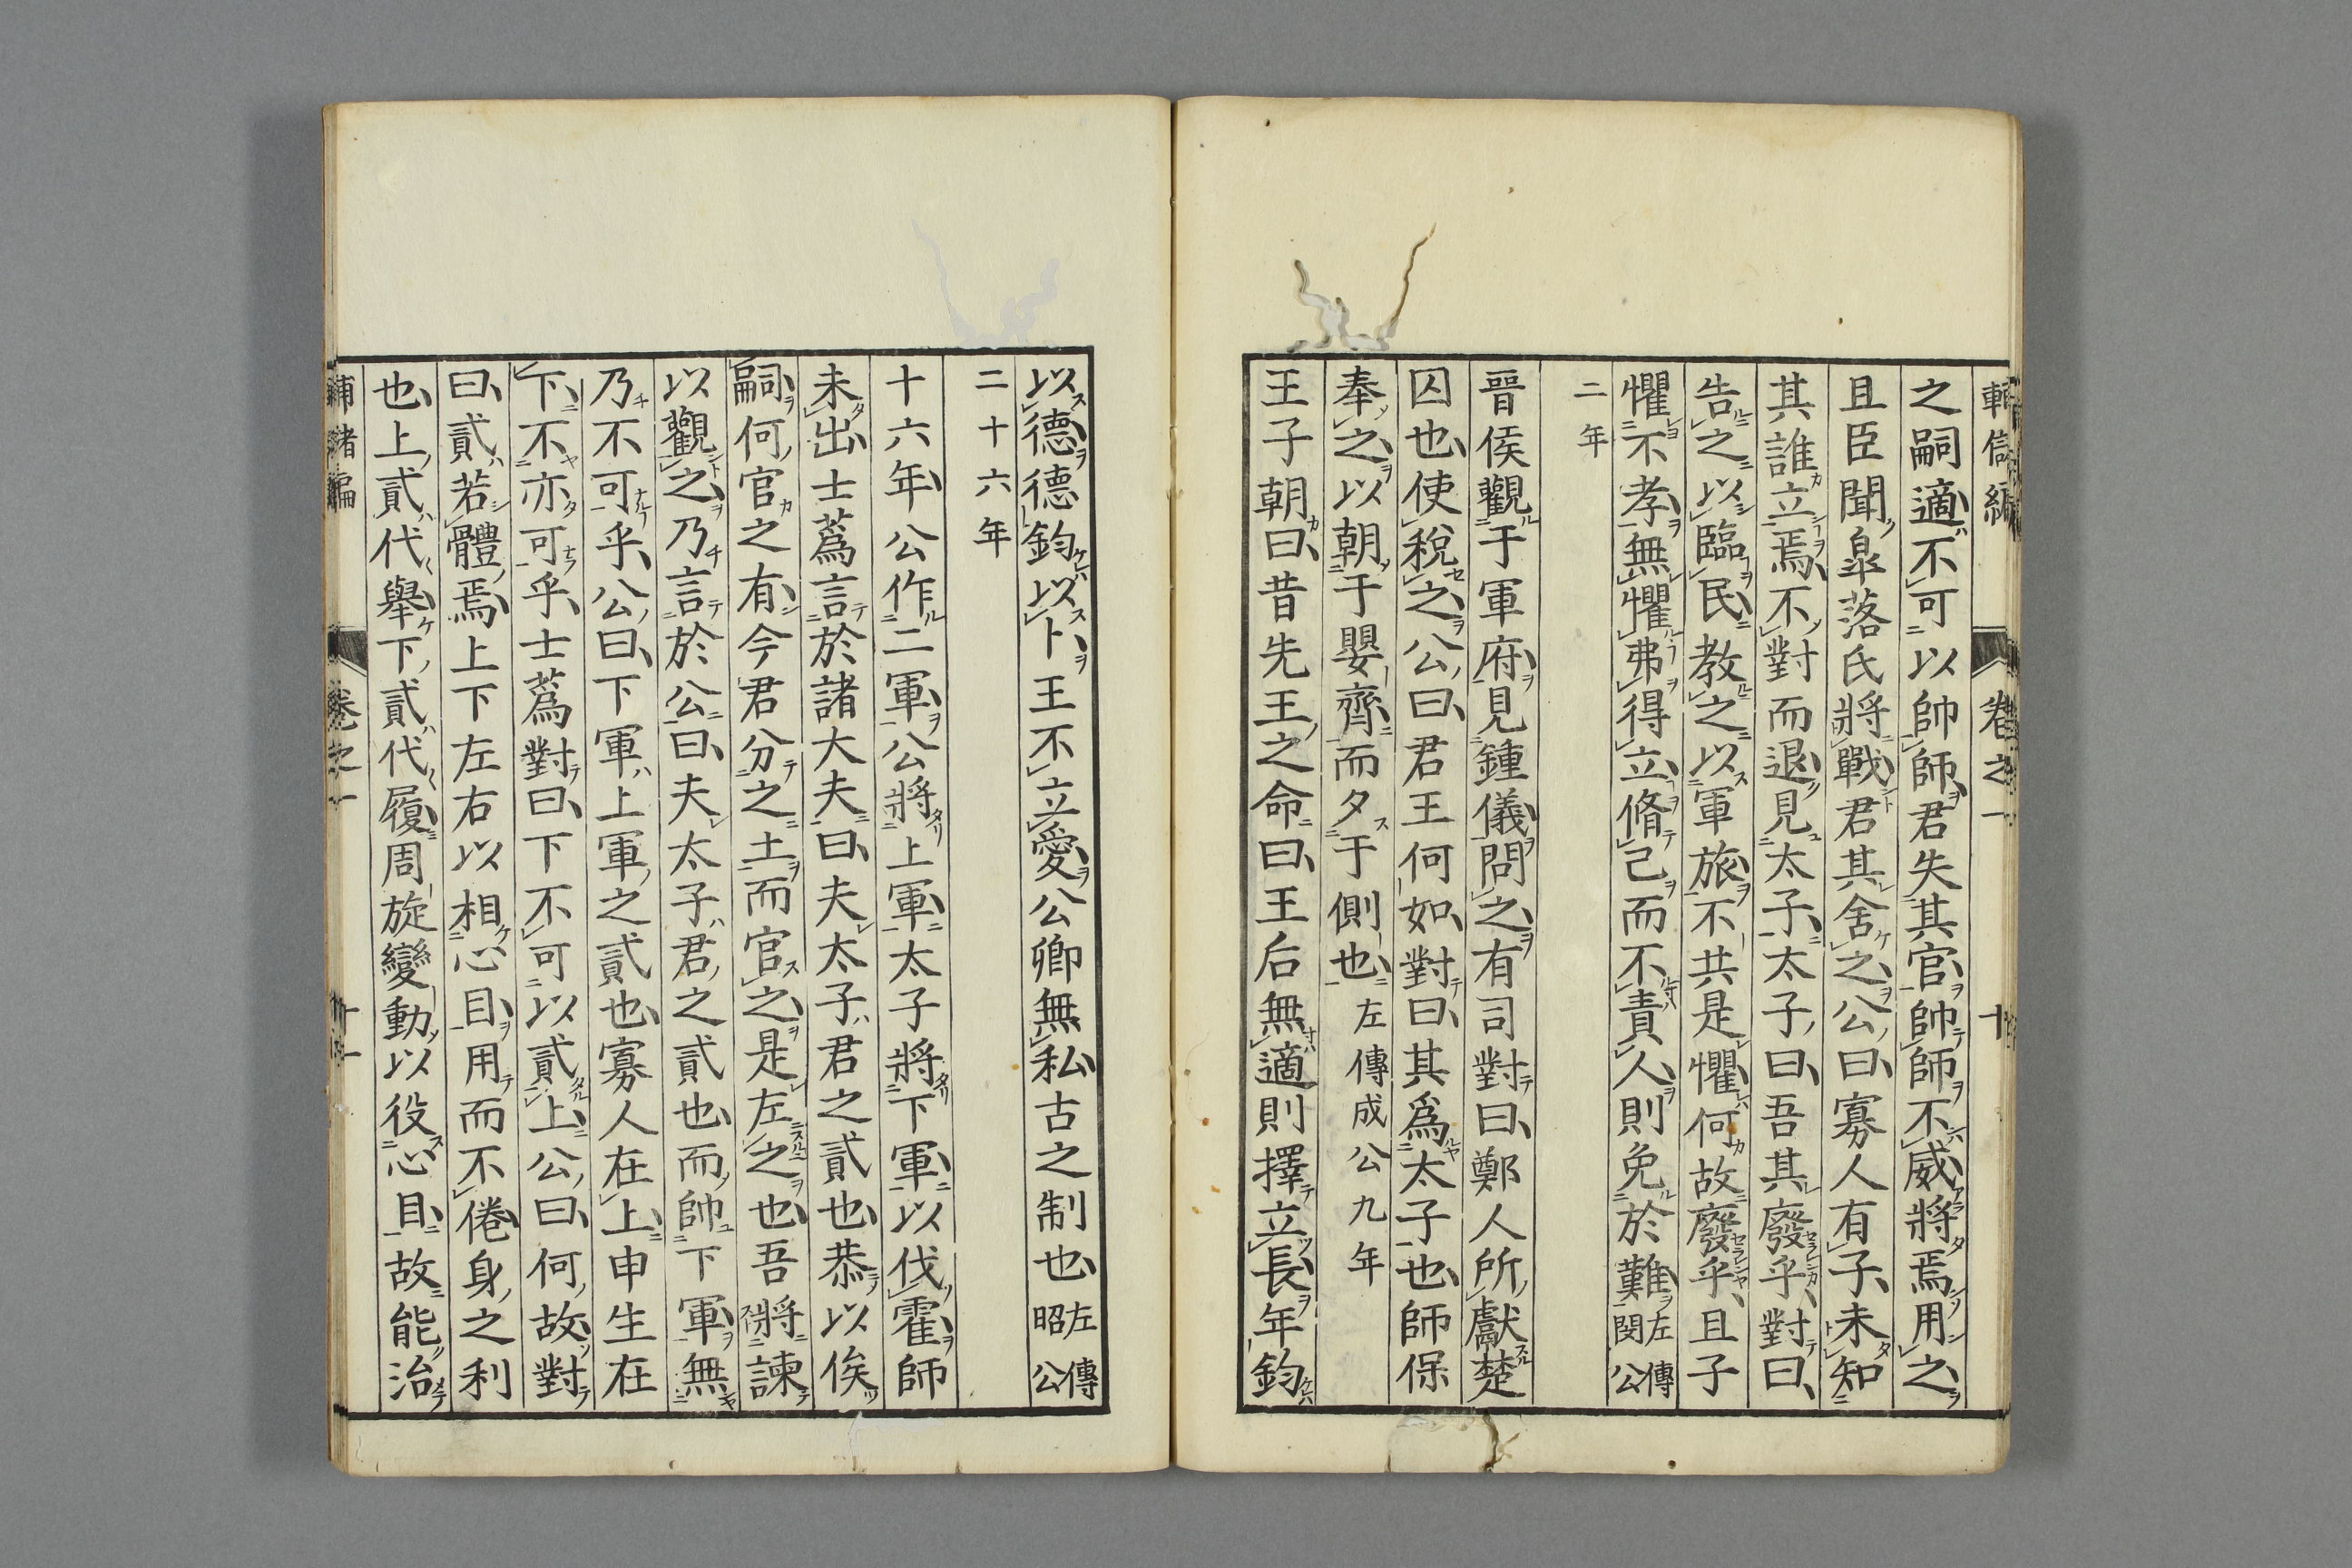 輔儲編 卷之一 十
之嗣適不可以帥師君失其官帥師不威將焉用之
且臣聞皐落氏將戰君其舍之公曰寡人有子未知
其誰立焉不對而退見太子太子曰吾其廢乎對曰
告之以臨民教之以軍旅不共是懼何故廢乎且子
懼不孝無懼弗得立脩己而不責人則免於難左傳閔公
二年
晉侯觀于軍府見鍾儀問之有司對曰鄭人所獻楚
囚也使税之公曰君王何如對曰其爲太子也師保
奉之以朝于嬰齊而夕于側也左傳成公九年
王子朝曰昔先王之命曰王后無適則擇立長年鈞
以德德鈞以卜王不立愛公卿無私古之制也左傳昭公
二十六年
十六年公作二軍公將上軍太子將下軍以伐霍師
未出士蒍言於諸大夫曰夫太子君之貳也恭以俟
嗣何官之有今君分之土而官之是左之也吾將諫
以觀之乃言於公曰夫太子君之貳也而帥下軍無
乃不可乎公曰下軍上軍之貳也寡人在上申生在
下不亦可乎士蒍對曰下不可以貳上公曰何故對
曰貳若體焉上下左右以相心目用而不倦身之利
也上貳代舉下貳代履周旋變動以役心目故能治
輔儲編 卷之一 十一